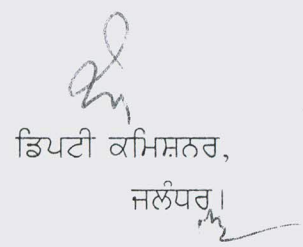 ਡਿਪਟੀ ਕਮਿਸ਼ਨਰ,
ਜਲੰਧਰ।